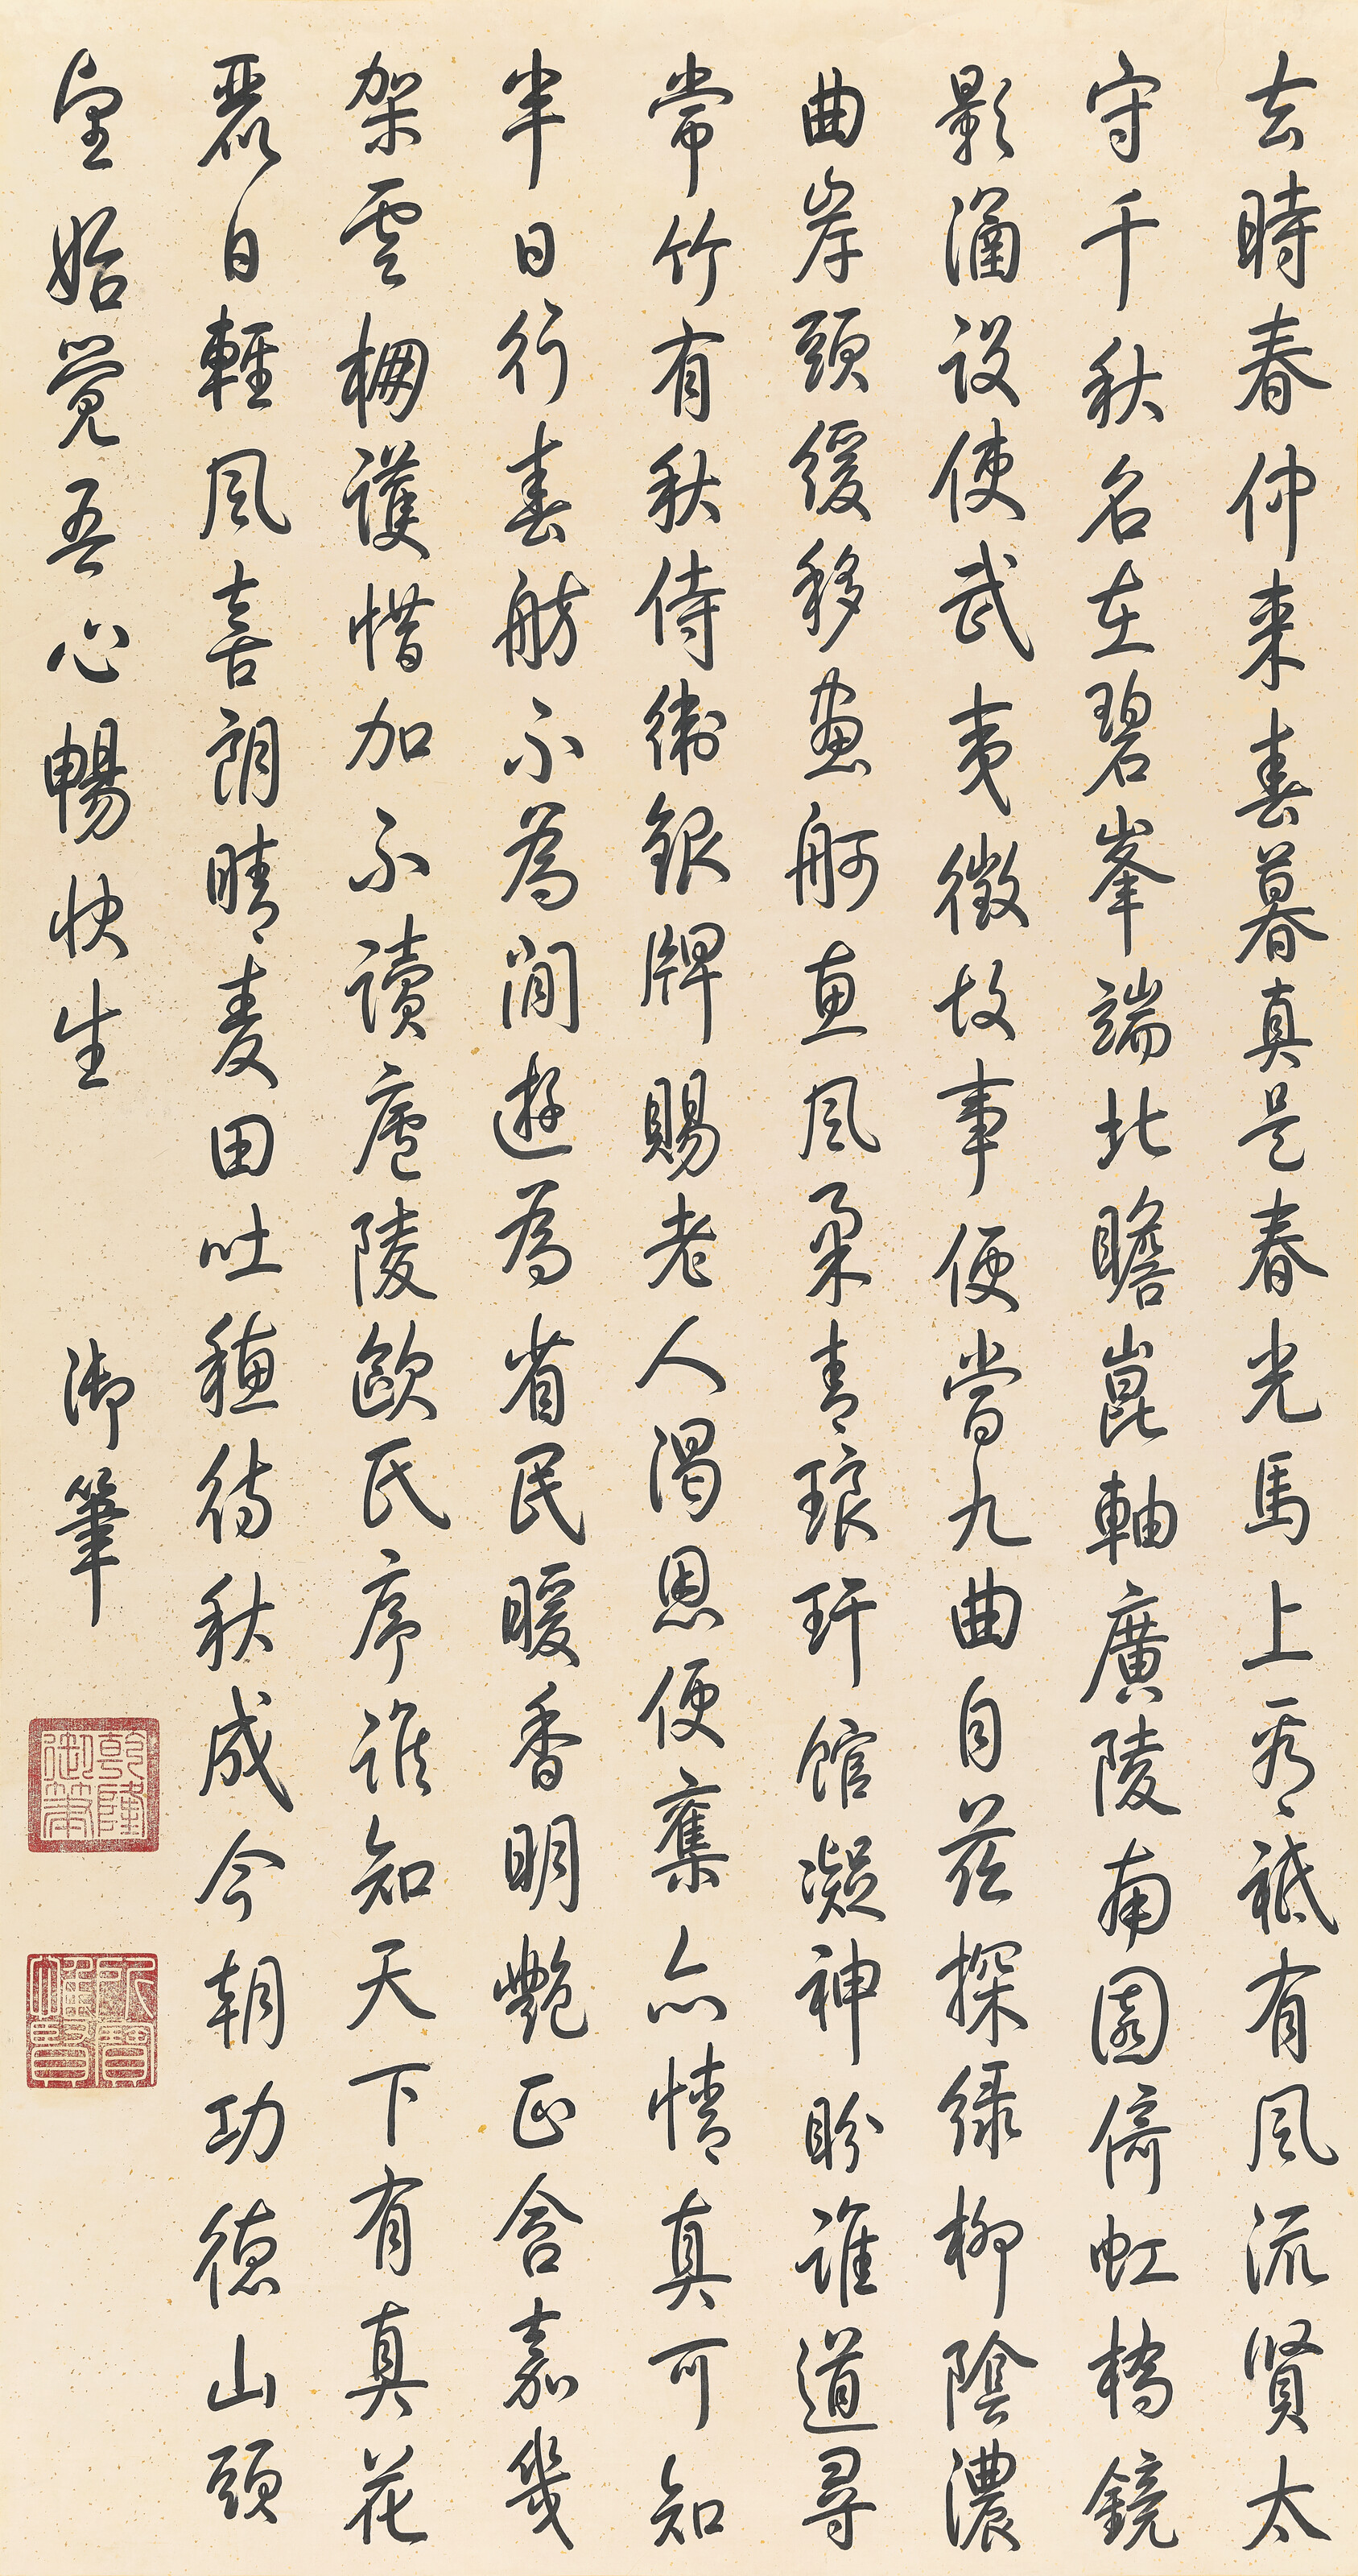 去時春仲来春暮真是春光馬上看〻祗有風流賢太
守千秋名在碧峯端北瞻崑軸廣陵南園倚虹橋鏡
影涵設使武夷徵故事便當九曲自茲探緑柳陰濃
曲岸頭緩移畫舸惠風柔青琅玕館凝神盼誰道尋
常竹有秋侍衛銀牌賜老人渴恩便奪亦情真可知
半日行春舫不為閒遊為省民暖香明艷正含嘉幾
架雲棚護惜加不讀廬陵歐氏序誰知天下有真花
麗日輕風喜朗晴〻麦田吐穗待秋成今朝功德山頭
望始覺吾心暢快生
御筆
乾隆御筆
所寶惟賢